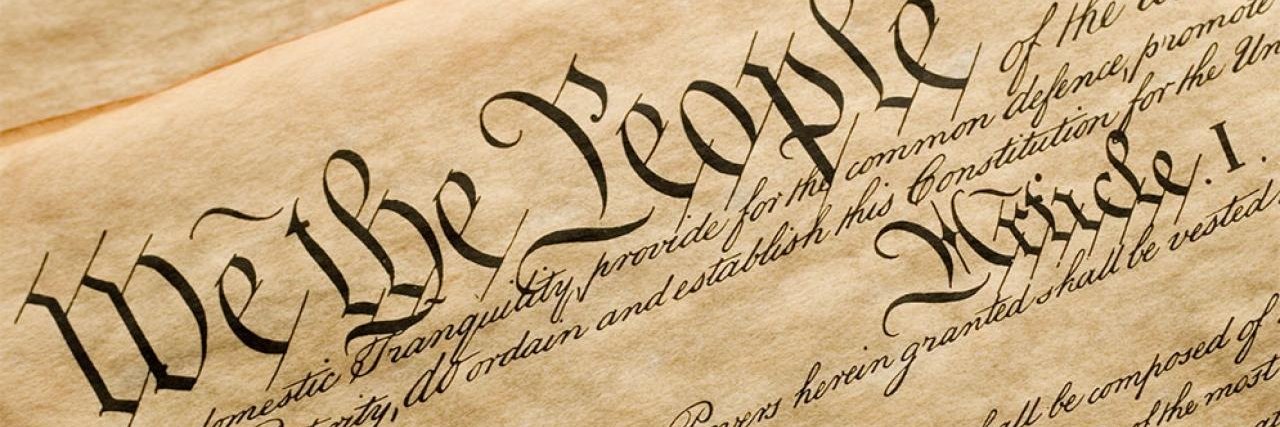 We the People of the
domestic Tranquility, provide for the common defence, promote
do ordain and establish this Constitution for the
Article. I.
Powers herein granted shall be vested
be composed of
of the most